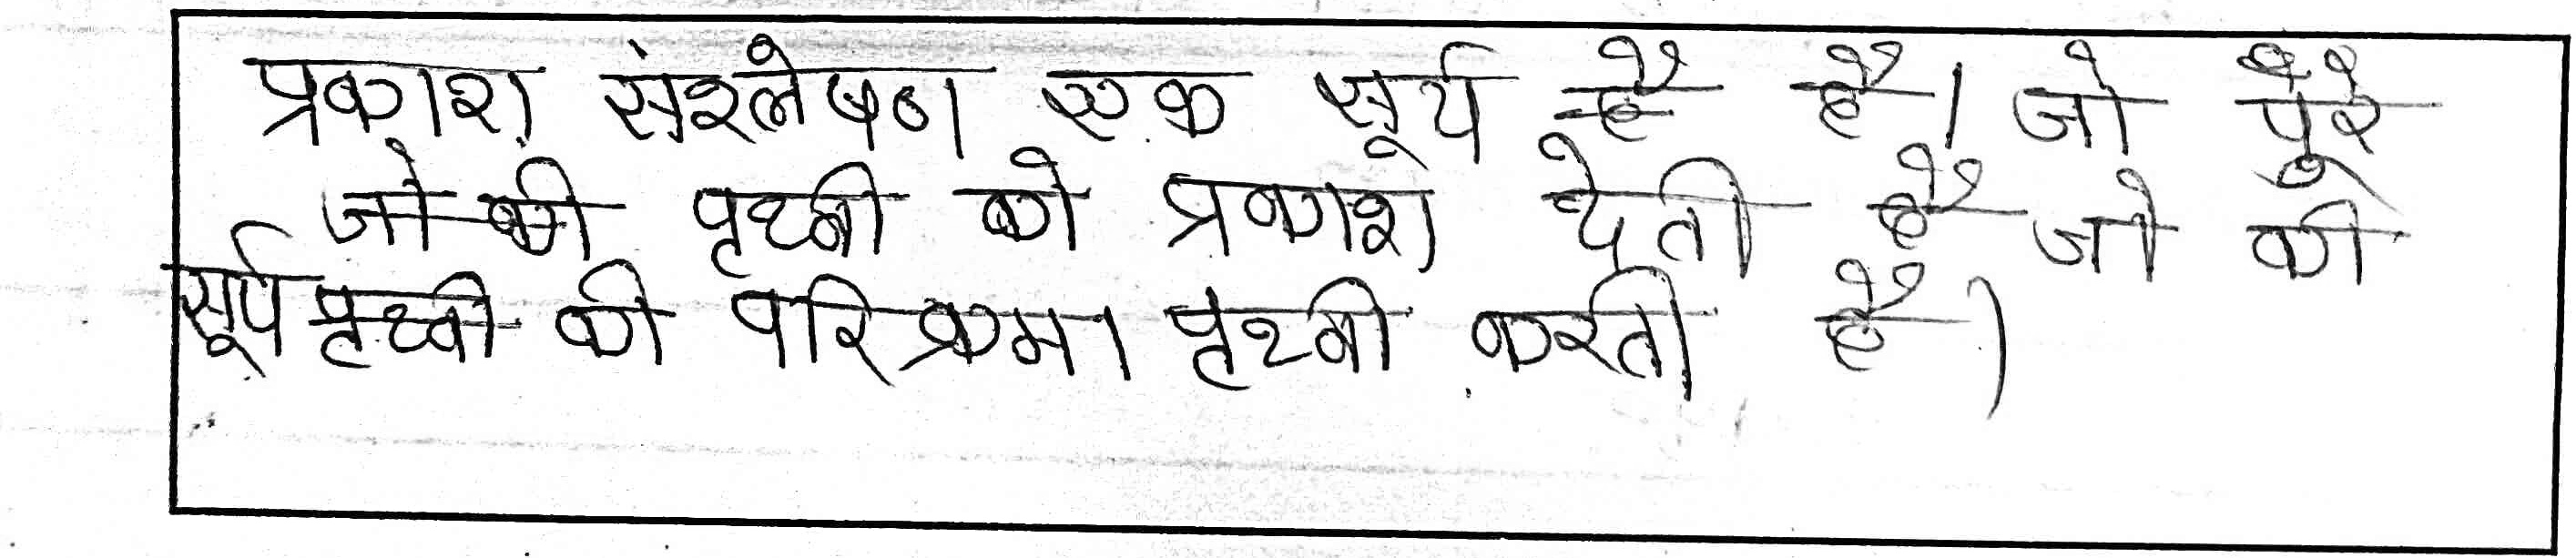 प्रकाश संश्लेषण एक सूर्य है है। जो पुरे
जो की पृथ्वी को प्रकाश देती है जो की
सूर्य पृथ्वी की परिक्रमा पृथ्वी करती है।